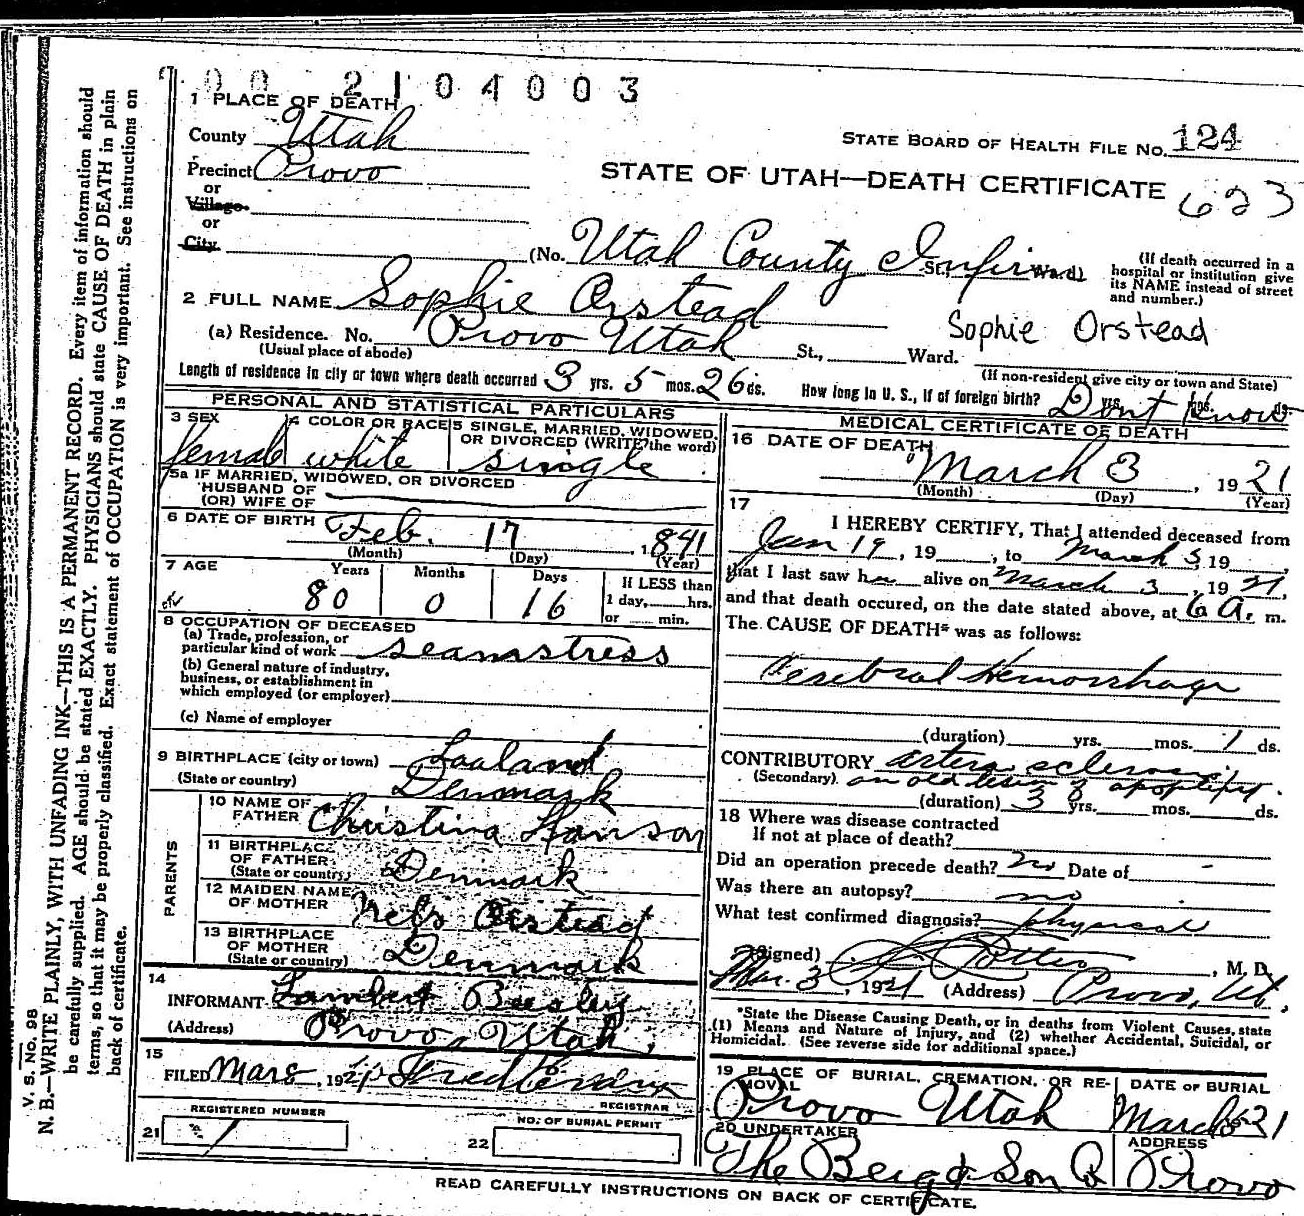 00 2104003
1 PLACE OF DEATH
County Utah
STATE BOARD OF HEALTH FILE No. 124
Precinct Provo
STATE OF UTAH—DEATH CERTIFICATE 623
or
Village
or
City
(No. Utah County Infirm St. Ward)
(If death occurred in a
hospital or institution give
its NAME instead of street
and number.)
2 FULL NAME Sophie Orstead
Sophie Orstead
(a) Residence. No. Provo Utah St., Ward.
(Usual place of abode)
(If non-resident give city or town and State)
Length of residence in city or town where death occurred 3 yrs. 5 mos. 26 ds. How long in U. S., if of foreign birth? Dont Know yrs. mos. ds.
PERSONAL AND STATISTICAL PARTICULARS
3 SEX
female
4 COLOR OR RACE
white
5 SINGLE, MARRIED, WIDOWED,
OR DIVORCED (WRITE the word)
single
5a IF MARRIED, WIDOWED, OR DIVORCED
HUSBAND OF
(OR) WIFE OF
6 DATE OF BIRTH Feb. 17, 1841
(Month) (Day) (Year)
7 AGE
Years Months Days
80 0 16
If LESS than
1 day, hrs.
or min.
8 OCCUPATION OF DECEASED
(a) Trade, profession, or
particular kind of work seamstress
(b) General nature of industry,
business, or establishment in
which employed (or employer)
(c) Name of employer
9 BIRTHPLACE (city or town) Laaland
(State or country) Denmark
PARENTS
10 NAME OF
FATHER Christina Hanson
11 BIRTHPLACE
OF FATHER
(State or country) Denmark
12 MAIDEN NAME
OF MOTHER Nels Orstead
13 BIRTHPLACE
OF MOTHER
(State or country) Denmark
14
INFORMANT Lambert Beesley
(Address) Provo, Utah,
15
FILED Mar 8, 192
REGISTRAR
REGISTERED NUMBER
21 1
NO. OF BURIAL PERMIT
22
MEDICAL CERTIFICATE OF DEATH
16 DATE OF DEATH
March 3, 1921
(Month) (Day) (Year)
17
I HEREBY CERTIFY, That I attended deceased from
Jan 19, 19 , to March 3 19 ,
that I last saw h alive on March 3, 1921,
and that death occured, on the date stated above, at 6 A. m.
The CAUSE OF DEATH* was as follows:
Cerebral Hemorrhage
(duration) yrs. mos. 1 ds.
CONTRIBUTORY
(Secondary) an old lesion of apoplexy.
(duration) 3 yrs. mos. ds.
18 Where was disease contracted
If not at place of death?
Did an operation precede death? no Date of -
Was there an autopsy? no
What test confirmed diagnosis? Physical
(Signed) , M. D.
Mar. 3, 1921 (Address) Provo, Ut.,
*State the Disease Causing Death, or in deaths from Violent Causes, state
(1) Means and Nature of Injury, and (2) whether Accidental, Suicidal, or
Homicidal. (See reverse side for additional space.)
19 PLACE OF BURIAL, CREMATION, OR RE-
MOVAL
Provo Utah
DATE OF BURIAL
March 5 21
20 UNDERTAKER
The Berg & Son Co
ADDRESS
Provo
READ CAREFULLY INSTRUCTIONS ON BACK OF CERTIFICATE.
V. S. No. 98
N. B.—WRITE PLAINLY, WITH UNFADING INK—THIS IS A PERMANENT RECORD. Every item of information should
be carefully supplied. AGE should be stated EXACTLY. PHYSICIANS should state CAUSE OF DEATH in plain
terms, so that it may be properly classified. Exact statement of OCCUPATION is very important. See instructions on
back of certificate.